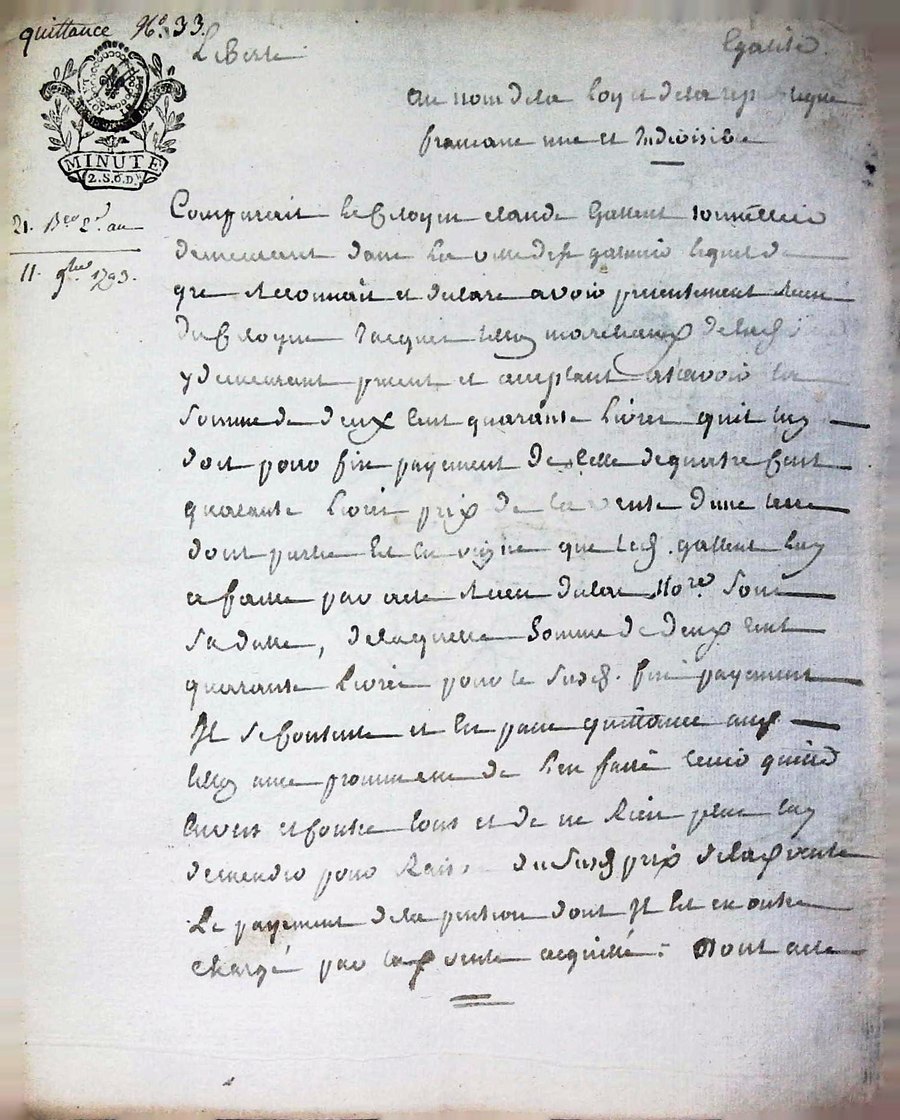 quittance N.° 33.
Liberté Egalité
MINUTE
2.S.6.D.
au nom de la loy et de la republique
francaise une et Indivisible
21. B.re 2.e an
11. 9bre 1793.
Comparait le Citoyen claude Gallent
demeurant dans la ville de st galmié lequel de
gre Reconnait et declare avoir presentement Receu
du Citoyen Jacques marchand
y demeurant present et acceptant ascavoir la
Somme de deux cent quarante livres quil luy
doit pour fin payement de celle de quatre cent
quarante livres prix de la vente d'une terre
dont partie est en vigne que led. gallent luy
a passee par acte Receu du
Sa datte, de laquelle Somme de deux cent
quarante livres pour le Susd. fin payement
Il se contente et en passe quittance aud.
avec promesse de l'en faire tenir quitte
Envers et contre tous et de ne Rien plus luy
demender pour du Susd prix de lad vente
Le payement de la pention dont Il est en outre
chargé par lad vente acquitté. Dont acte